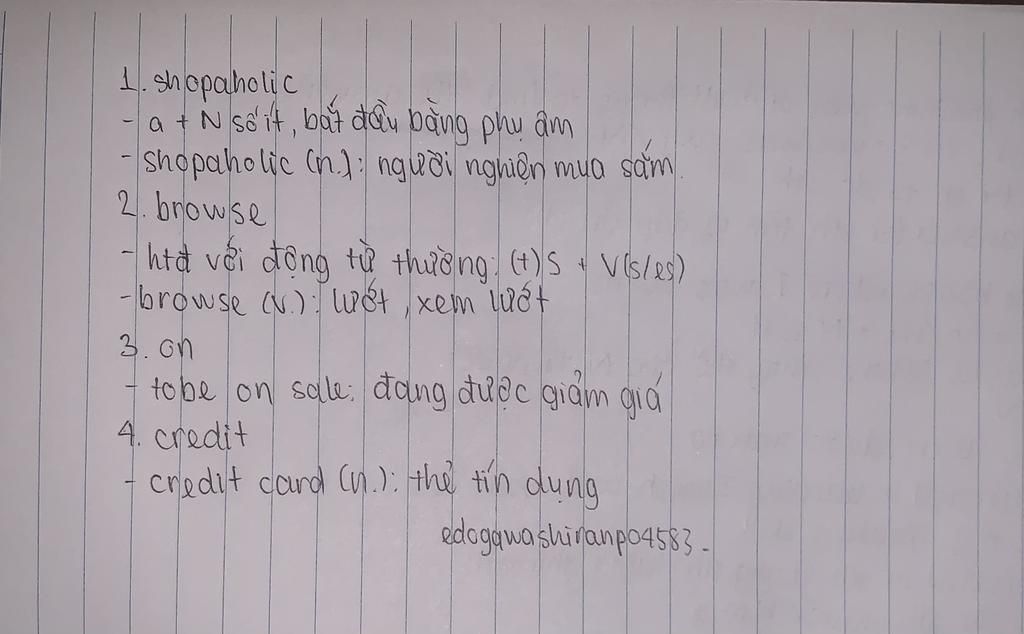 1. shopaholic
- a + N số ít, bắt đầu bằng phụ âm
- shopaholic (n.): người nghiện mua sắm.
2. browse
- htđ với động từ thường: (+) S + V(s/es)
- browse (v.): lướt, xem lướt
3. on
- tobe on sale: đang được giảm giá
4. credit
- credit card (n.): thẻ tín dụng
edogawashiranpo4583.